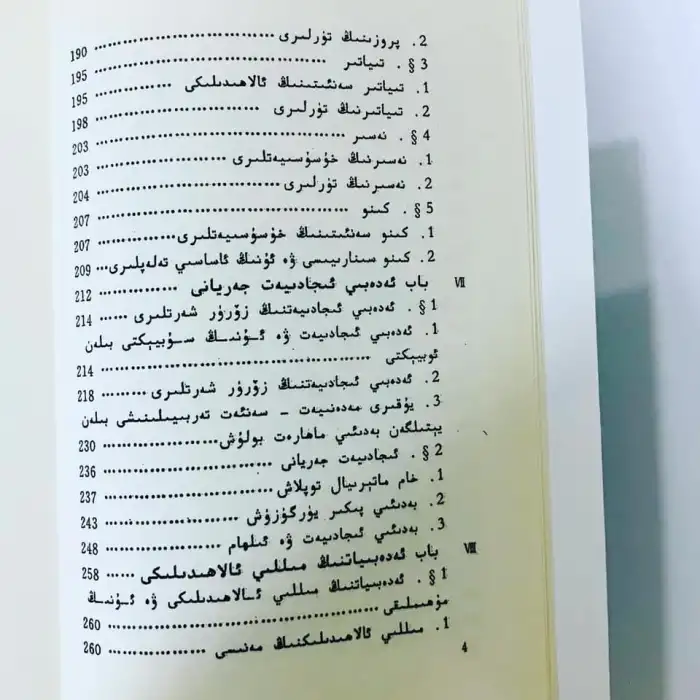 2. پروزىنىڭ تۈرلىرى ································ 190
§3 . تىياتىر ································ 195
1. تىياتىر سەنئىتىنىڭ ئالاھىدىلىكى ················ 195
2. تىياتىرنىڭ تۈرلىرى ························ 198
§4 . نەسىر ································ 203
1. نەسىرنىڭ خۇسۇسىيەتلىرى ······················ 203
2. نەسىرنىڭ تۈرلىرى ···························· 204
§5 . كىنو ································ 207
1. كىنو سەنئىتىنىڭ خۇسۇسىيەتلىرى ················ 207
2. كىنو سىنارىيىسى ۋە ئۇنىڭ ئاساسىي تەلەپلىرى ··· 209
VII باب ئەدەبىي ئىجادىيەت جەريانى ················ 212
§1 . ئەدەبىي ئىجادىيەتنىڭ زۆرۈر شەرتلىرى ······ 214
1. ئەدەبىي ئىجادىيەت ۋە ئۇنىڭ سۇبيېكتى بىلەن
ئوبيېكتى ································ 214
2. ئەدەبىي ئىجادىيەتنىڭ زۆرۈر شەرتلىرى ········· 218
3. يۇقىرى مەدەنىيەت - سەنئەت تەربىيىلىنىشى بىلەن
يېتىلگەن بەدىئىي ماھارەت بولۇش ················ 230
§2 . ئىجادىيەت جەريانى ························ 236
1. خام ماتېرىيال توپلاش ························ 237
2. بەدىئىي پىكىر يۈرگۈزۈش ······················ 243
3. بەدىئىي ئىجادىيەت ۋە ئىلھام ·················· 248
VIII باب ئەدەبىياتنىڭ مىللىي ئالاھىدىلىكى ······ 258
§1 . ئەدەبىياتنىڭ مىللىي ئالاھىدىلىكى ۋە ئۇنىڭ
مۇھىملىقى ································ 260
1. مىللىي ئالاھىدىلىكنىڭ مەنىسى ················ 260
4